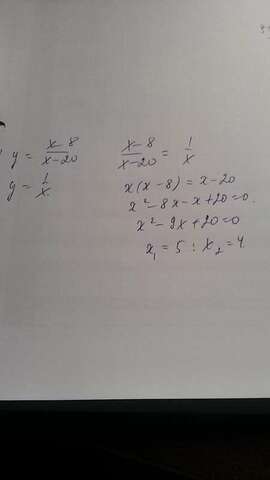 y = x-8/x-20
y = 1/x
x-8/x-20 = 1/x
x(x-8) = x-20
x²-8x-x+20=0.
x²-9x+20=0
x₁=5; x₂=4